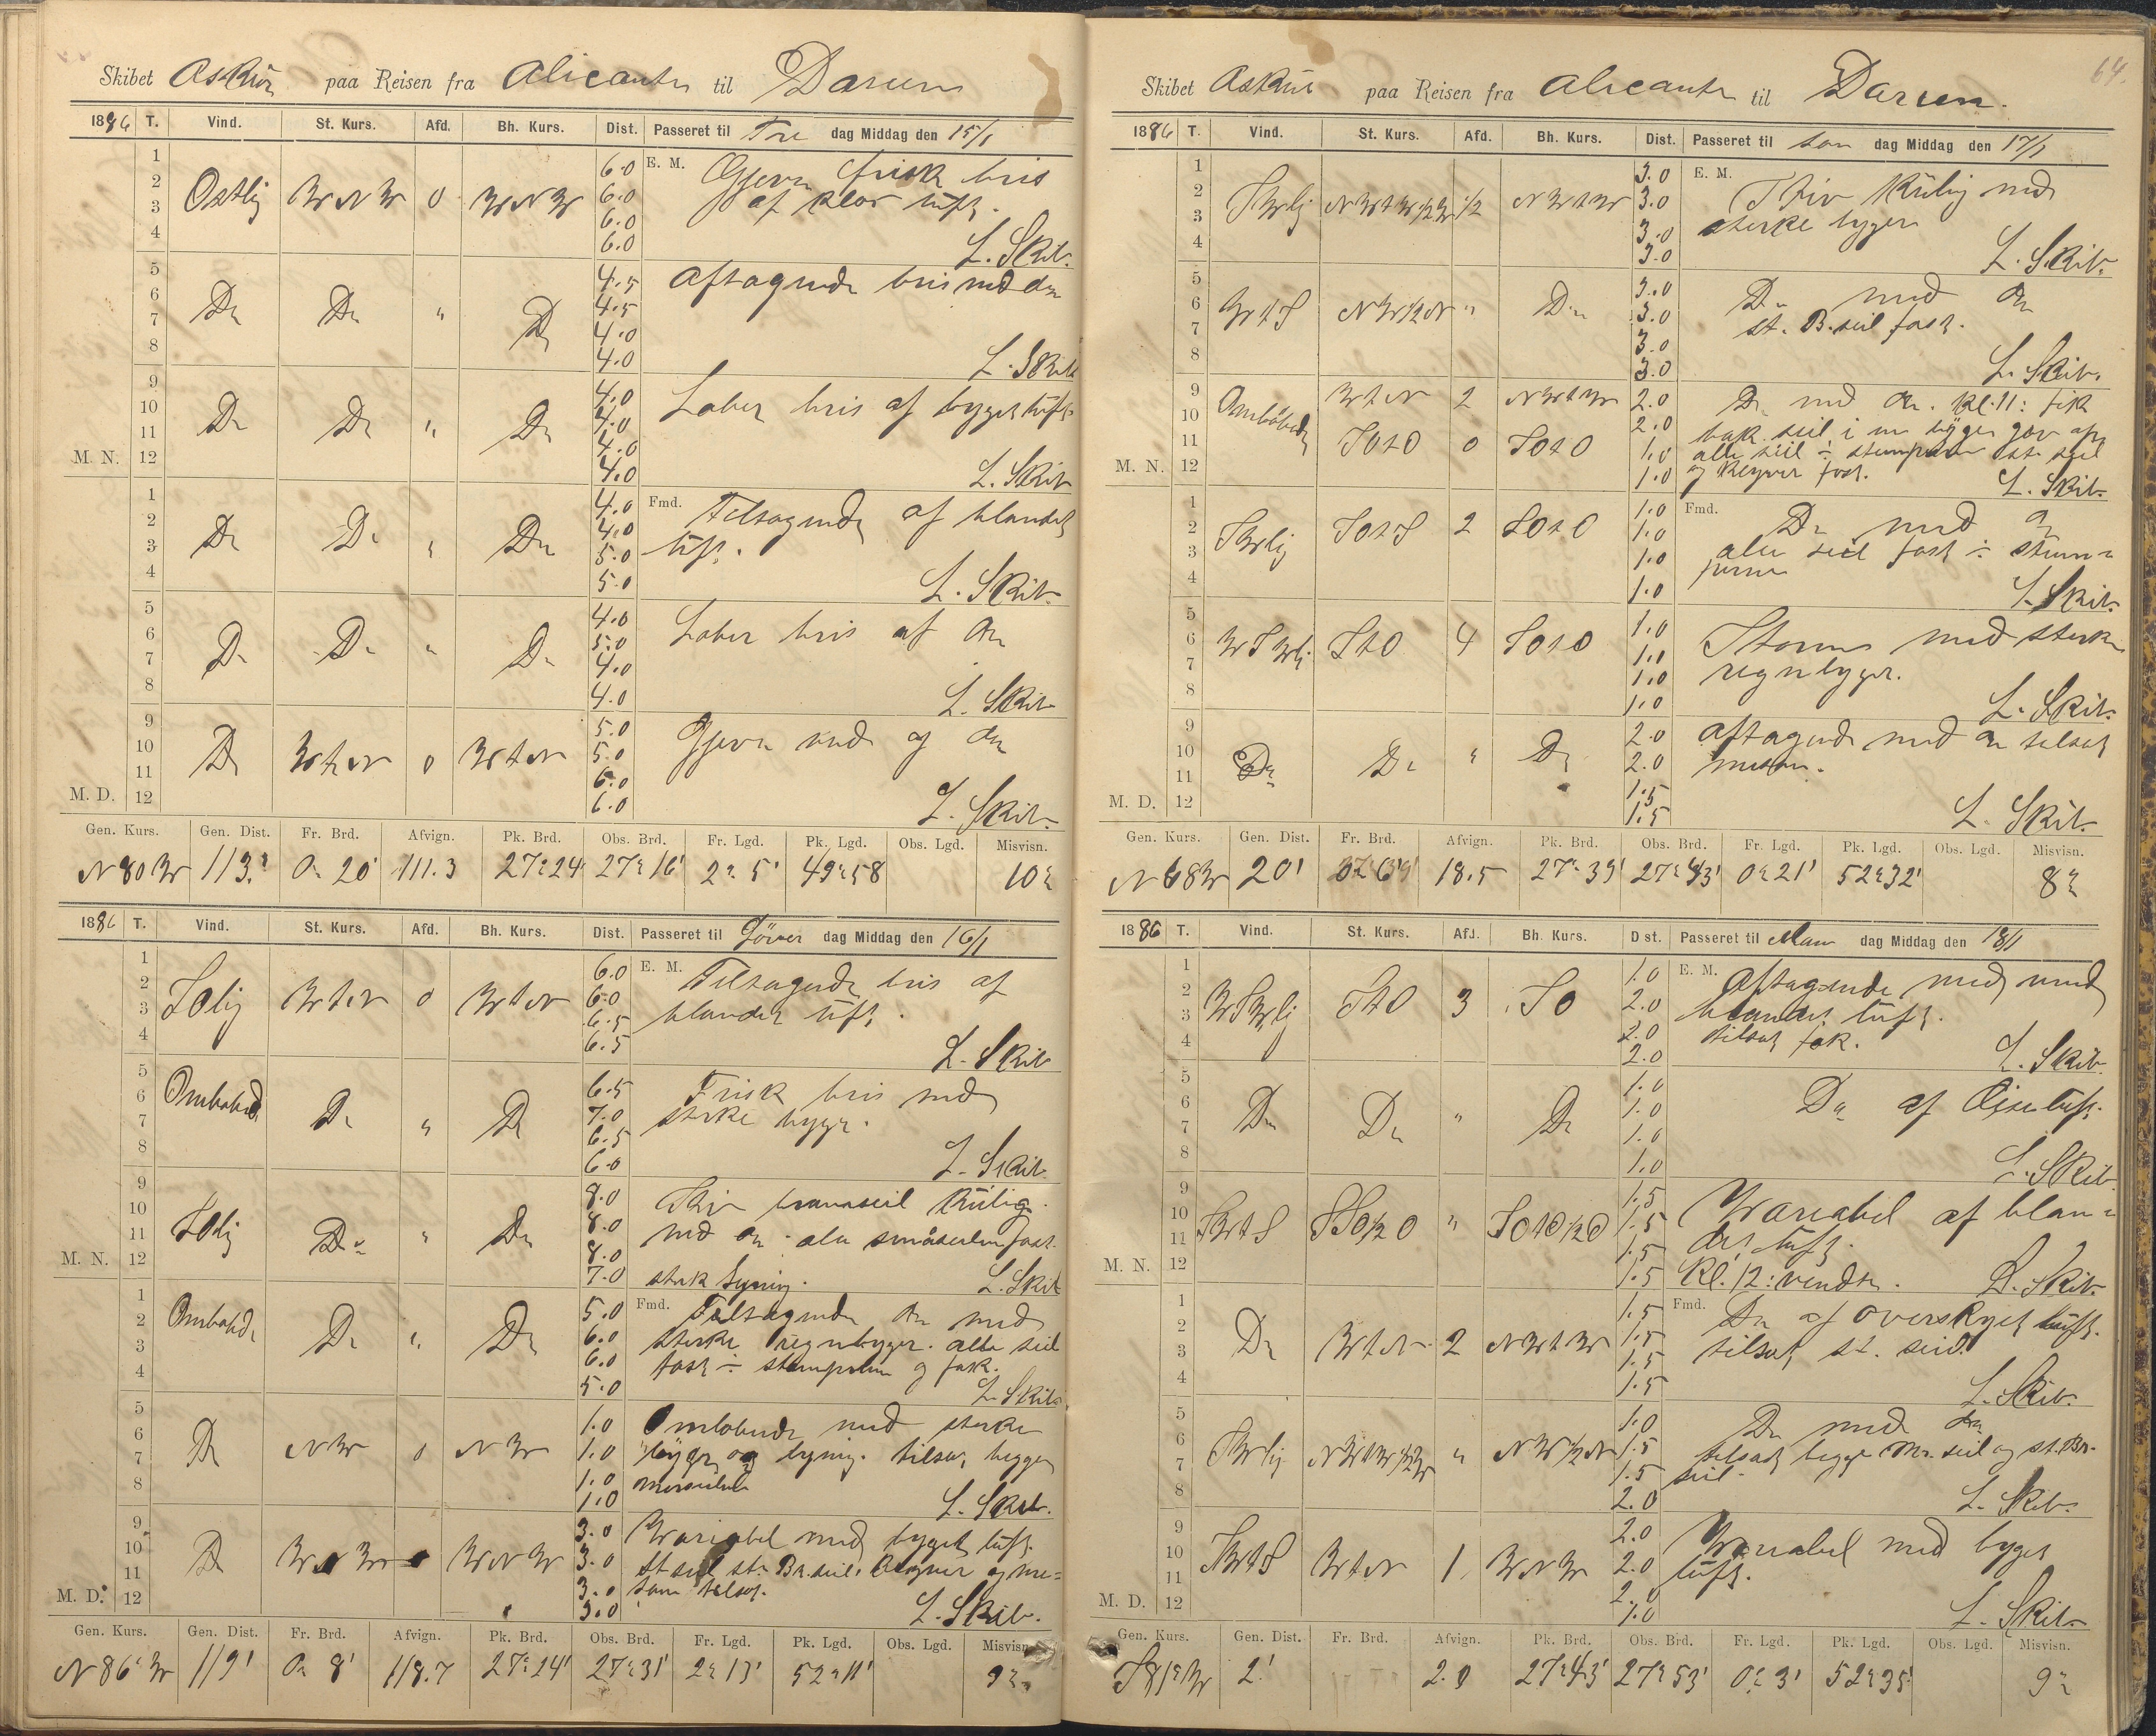 Skibet Askur paa Reisen fra Alicante til Darien
1886 T. Vind. St. Kurs. Afd. Bh. Kurs. Dist. Passeret til Fre dag Middag den 15/1
1 6.0 E. M. Gjevn frisk bris
2 Ostlig WNW 0 WNW 6.0 af klar luft.
3 6.0
4 6.0 L. Skib.
5 4.5 Aftagende bris med do
6 Do Do " Do 4.5
7 4.0
8 4.0 L. Skib
9 4.0 Laber bris af byget luft
10 Do Do " Do 4.0
11 4.0
M. N. 12 4.0 L. Skib
1 4.0 Fmd. Tiltagende af blandet
2 Do Do " Do 4.0 luft.
3 5.0
4 5.0 L. Skib.
5 4.0 Laber bris af do
6 Do Do " Do 5.0
7 4.0
8 4.0 L. Skib
9 5.0 Gjevn med og do
10 Do WtN 0 WtN 5.0
11 6.0
M. D. 12 6.0 L. Skib.
Gen. Kurs. Gen. Dist. Fr. Brd. Afvign. Pk. Brd. Obs. Brd. Fr. Lgd. Pk. Lgd. Obs. Lgd. Misvisn.
N 80 W 113' 0° 20' 111.3 27° 24' 27° 16' 2° 5' 49° 58 10°
1886 T. Vind. St. Kurs. Afd. Bh. Kurs. Dist. Passeret til Löver dag Middag den 16/1
1 6.0 E. M. Tiltagende bris af
2 SOlig WtN 0 WtN 6.0 blandet luft.
3 6.5
4 6.5 L. Skib
5 6.5 Frisk bris med
6 Omlobende Do " Do 7.0 sterke byger.
7 6.5
8 6.0 L. Skib.
9 8.0 Stiv bramseil Kuling
10 SOlig Do " Do 8.0 med do. alle småseilen fast.
11 8.0
M. N. 12 7.0 sterk lyning. L. Skib
1 5.0 Fmd. Tiltagende do med
2 Omlobende Do " Do 6.0 sterke regnbyger. alle seil
3 6.0 fast ÷ stumperne og fok.
4 5.0 L. Skib.
5 1.0 Omlobende med sterke
6 Do NW 0 NW 1.0 byger og lyning. tilsat begge
7 1.0 merseilene
8 1.0 L. Skib.
9 3.0 Wariabel med byget luft.
10 Do WNW WNW 3.0 St. seil st. Br. seil. klyver og me=
11 3.0 san tilsat.
M. D. 12 3.0 L. Skib.
Gen. Kurs. Gen. Dist. Fr. Brd. Afvign. Pk. Brd. Obs. Brd. Fr. Lgd. Pk. Lgd. Obs. Lgd. Misvisn.
N 86° W 119' 0° 8' 118.7 27° 24' 27° 31' 2° 13' 52° 11' 9°
64.
Skibet Askur paa Reisen fra Alicante til Darien.
1886 T. Vind. St. Kurs. Afd. Bh. Kurs. Dist. Passeret til Søn dag Middag den 17/1
1 3.0 E. M. Stiv Kuling med
2 SWlig NWtW½W ½ NWtW 3.0 sterke byger
3 3.0
4 3.0 L. Skib.
5 3.0 Do med do
6 WtS NW½N " Do 3.0 st. B. seil fast.
7 3.0
8 3.0 L. Skib.
9 WtN 2 NWtW 2.0 Do med do. Kl. 11: fik
10 Omlobende 2.0 bak seil i en byge gav op
11 SOtO 0 SOtO 1.0 alle seil ÷ stumperne st. seil
M. N. 12 1.0 og klyver fast. L. Skib.
1 1.0 Fmd. Do med do
2 SWlig SOtS 2 SOtO 1.0 alle seil fast ÷ stum=
3 1.0 perne
4 1.0 L. Skib.
5 1.0 Storm med sterke
6 WSWlig StO 4 SOtO 1.0 regnbyger.
7 1.0
8 1.0 L. Skib.
9 2.0 Aftagende med do tilsat
10 Do Do " Do 2.0 mesan.
11 1.5
M. D. 12 1.5 L. Skib.
Gen. Kurs. Gen. Dist. Fr. Brd. Afvign. Pk. Brd. Obs. Brd. Fr. Lgd. Pk. Lgd. Obs. Lgd. Misvisn.
N 68 W 20' 18.5 27° 39' 27° 43' 0° 21' 52° 32' 8°
1886 T. Vind. St. Kurs. Afd. Bh. Kurs. Dist. Passeret til Man dag Middag den 18/1
1 1.0 E. M. Aftagende med vind
2 WSWlig StO 3 SO 2.0 blandet luft.
3 2.0 tilsat fok.
4 2.0 L. Skib.
5 1.0 Do af luft.
6 Do Do " Do 1.0
7 1.0
8 1.0 L. Skib.
9 1.5 Wariabel af blan=
10 SWtS SSO½O " SOtO½O 1.5 det luft.
11 1.5
M. N. 12 1.5 Kl. 12: vendte. L. Skib.
1 1.5 Fmd. Do af overskyet luft.
2 Do WtN 2 NWtW 1.5 tilsat st. seil.
3 1.5
4 1.5 L. Skib.
5 1.0 Do med do
6 SWlig NWtW½W " NW½N 1.5 tilsat begge Mr. seil og st. Br.
7 1.5 seil
8 2.0 L. Skib.
9 2.0 Wariabel med byget
10 SWtS WtN 1 WNW 2.0 luft.
11 2.0
M. D. 12 1.0 L. Skib.
Gen. Kurs. Gen. Dist. Fr. Brd. Afvign. Pk. Brd. Obs. Brd. Fr. Lgd. Pk. Lgd. Obs. Lgd. Misvisn.
S 81° W 2' 2.0 27° 43' 27° 53' 0° 3' 52° 35' 9°